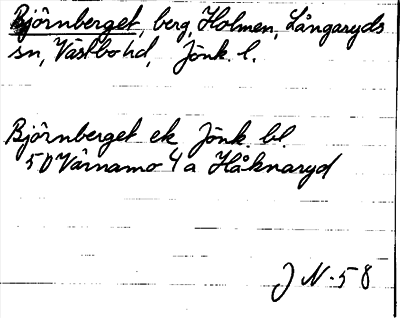 Björnberget, berg, Holmen, Långaryds
sn, Västbo hd, Jönk. l.
Björnberget ek Jönk. bl.
5D Värnamo 4a Håknaryd
J N-58